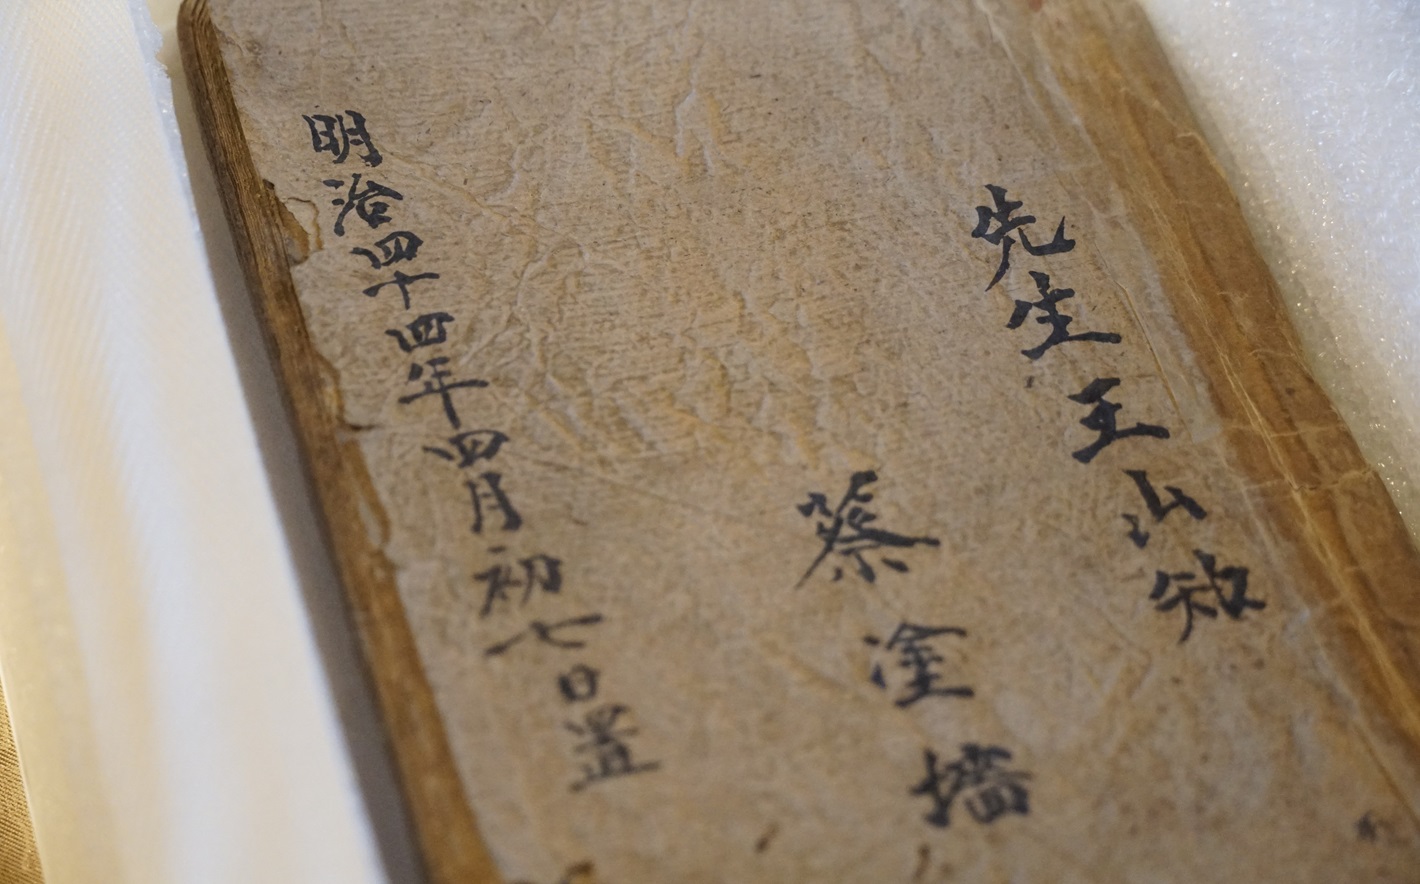 先生王山知
蔡塗墻
明治四十四年四月初七日置